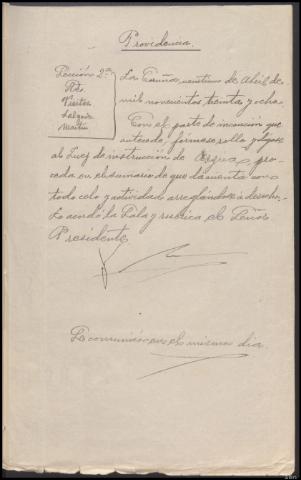 Providencia.
Sección 2ª
Pte.
Vieites
Salgado
Martín
La Coruña, veintiuno de Abril de
mil novecientos treinta y ocho.
Con el parte de incoación que
antecede, fórmese rollo y dígase
al Juez de instrucción de proceda en el sumario de que da cuenta con
todo celo y actividad arreglándose a derecho.
Lo acordó la Sala y rubrica el Señor
Presidente,
Lo comunicó en el mismo día.